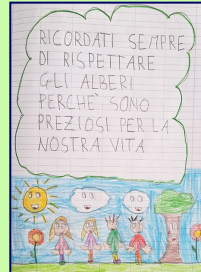 RICORDATI SEMPRE
DI RISPETTARE
GLI ALBERI
PERCHÈ SONO
PREZIOSI PER LA
NOSTRA VITA